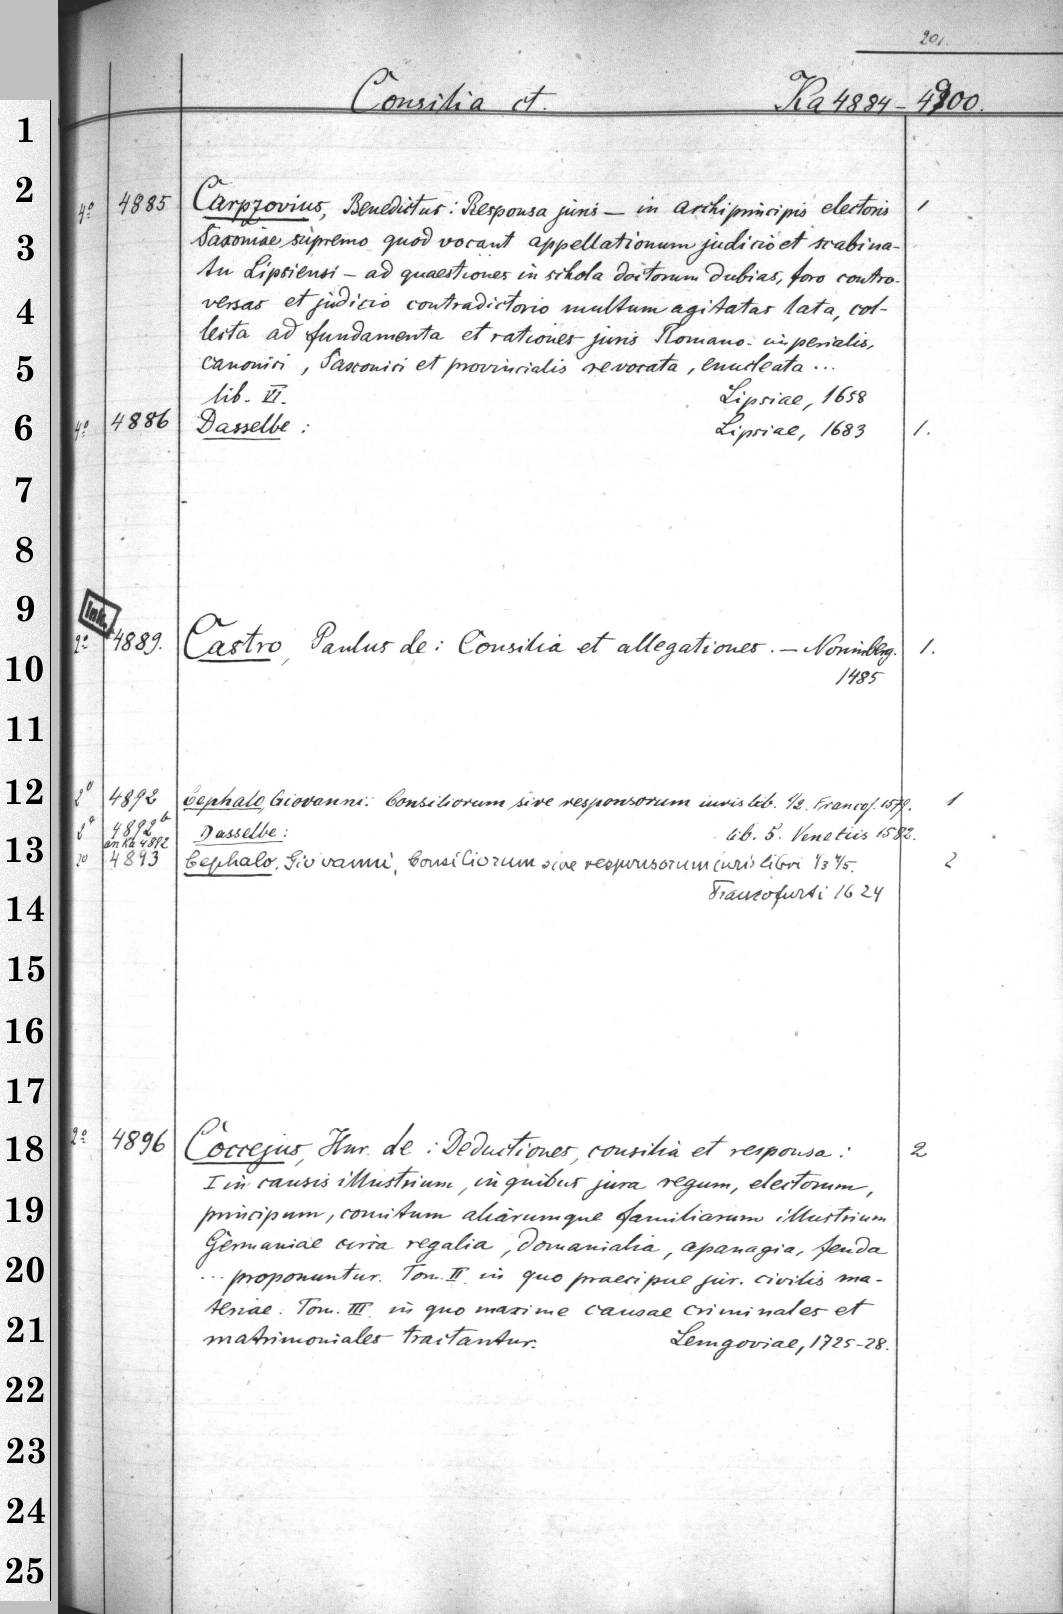 201.
Consilia et. Ka 4884 - 4900.
1
2
4º 4885 Carpzovius, Benedictus: Responsa juris — in archiprincipis electoris 1
3
Saxoniae supremo quod vocant appellationum judicio et scabina-
tu Lipsiensi — ad quaestiones in schola doctorum dubias, foro contro-
4
versas et judicio contradictorio multum agitatas lata, col-
lecta ad fundamenta et rationes juris Romano-imperialis,
5
canonici, Saxonici et provincialis revocata, enucleata ...
lib. VI. Lipsiae, 1658
6
4º 4886 Dasselbe: Lipsiae, 1683 1.
7
8
9
Ink.
2º 4889. Castro, Paulus de: Consilia et allegationes. — Norimberg. 1.
10
1485
11
12
2º 4892 Cephalo, Giovanni: Consiliorum sive responsorum iuris lib. 1/2. Francof. 1579. 1
2º 4892b Dasselbe: lib. 5. Venetiis 1582.
an Ka 4892
13
2º 4893 Cephalo, Giovanni, Consiliorum sive responsorum iuris libri 1/3 4/5. 2
Francofurti 1624
14
15
16
17
18
2º 4896 Coccejus, Hnr. de: Deductiones, consilia et responsa: 2
I in causis illustrium, in quibus jura regum, electorum,
19
principum, comitum aliarumque familiarum illustrium
Germaniae circa regalia, domanialia, apanagia, feuda
20
... proponuntur. Tom. II in quo praecipue jur. civilis ma-
teriae. Tom. III in quo maxime causae criminales et
21
matrimoniales tractantur. Lemgoviae, 1725-28.
22
23
24
25